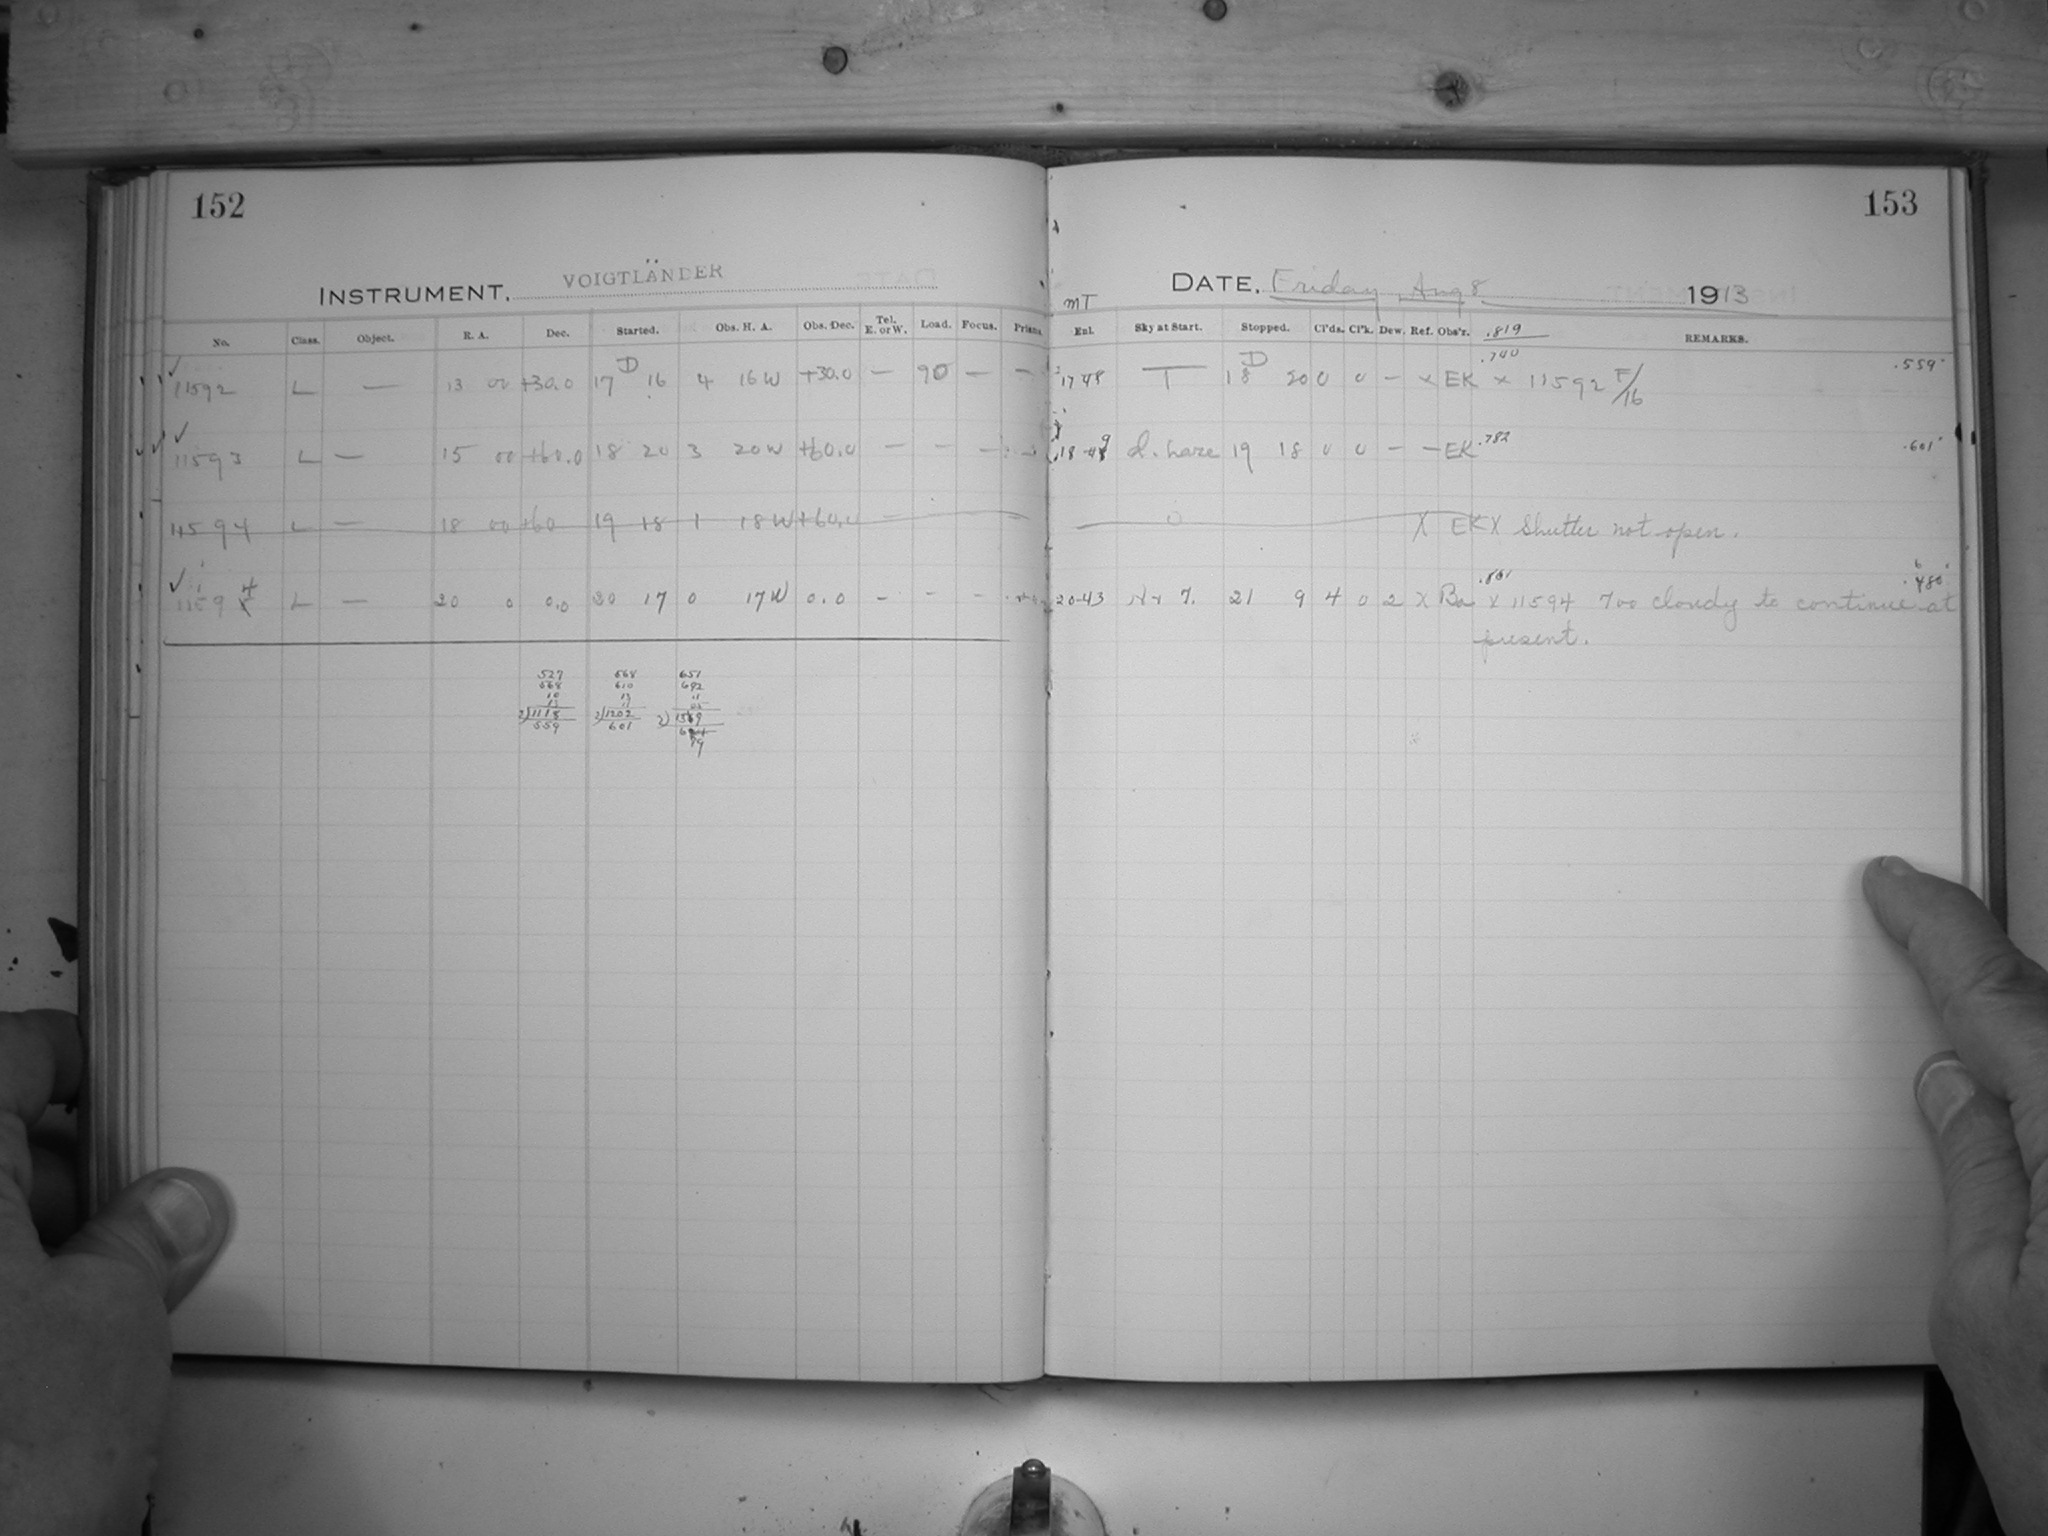 152
INSTRUMENT, VOIGTLÄNDER
No. Class. Object. R. A. Dec. Started. Obs. H. A. Obs. Dec. Tel. E. or W. Load. Focus. Prism.
✓ 11592 L — 13 00 +30.0 17 D 16 4 16 W +30.0 — 90 — —
✓ 11593 L — 15 00 +60.0 18 20 3 20 W +60.0 — — —
11594 L — 18 00 +60 19 18 1 18 W +60.0 —
✓ 11594 L — 20 0 0.0 20 17 0 17 W 0.0 - - -
527 568 651
568 610 692
10 13
2)1118 2)1202 2)
559 601
153
DATE, Friday, Aug 8 1913
mT
Enl. Sky at Start. Stopped. Cl'ds. Cl'k. Dew. Ref. Obs'r. .819 REMARKS.
.740 .559
17 48 T 18 D 20 0 0 — x EK x 11592 F/16
18 49 d. haze 19 18 0 0 — — EK .782 .601
0 X EK X Shutter not open.
.861
20-43 21 9 4 0 2 X Ba x 11594 Too cloudy to continue at
present.